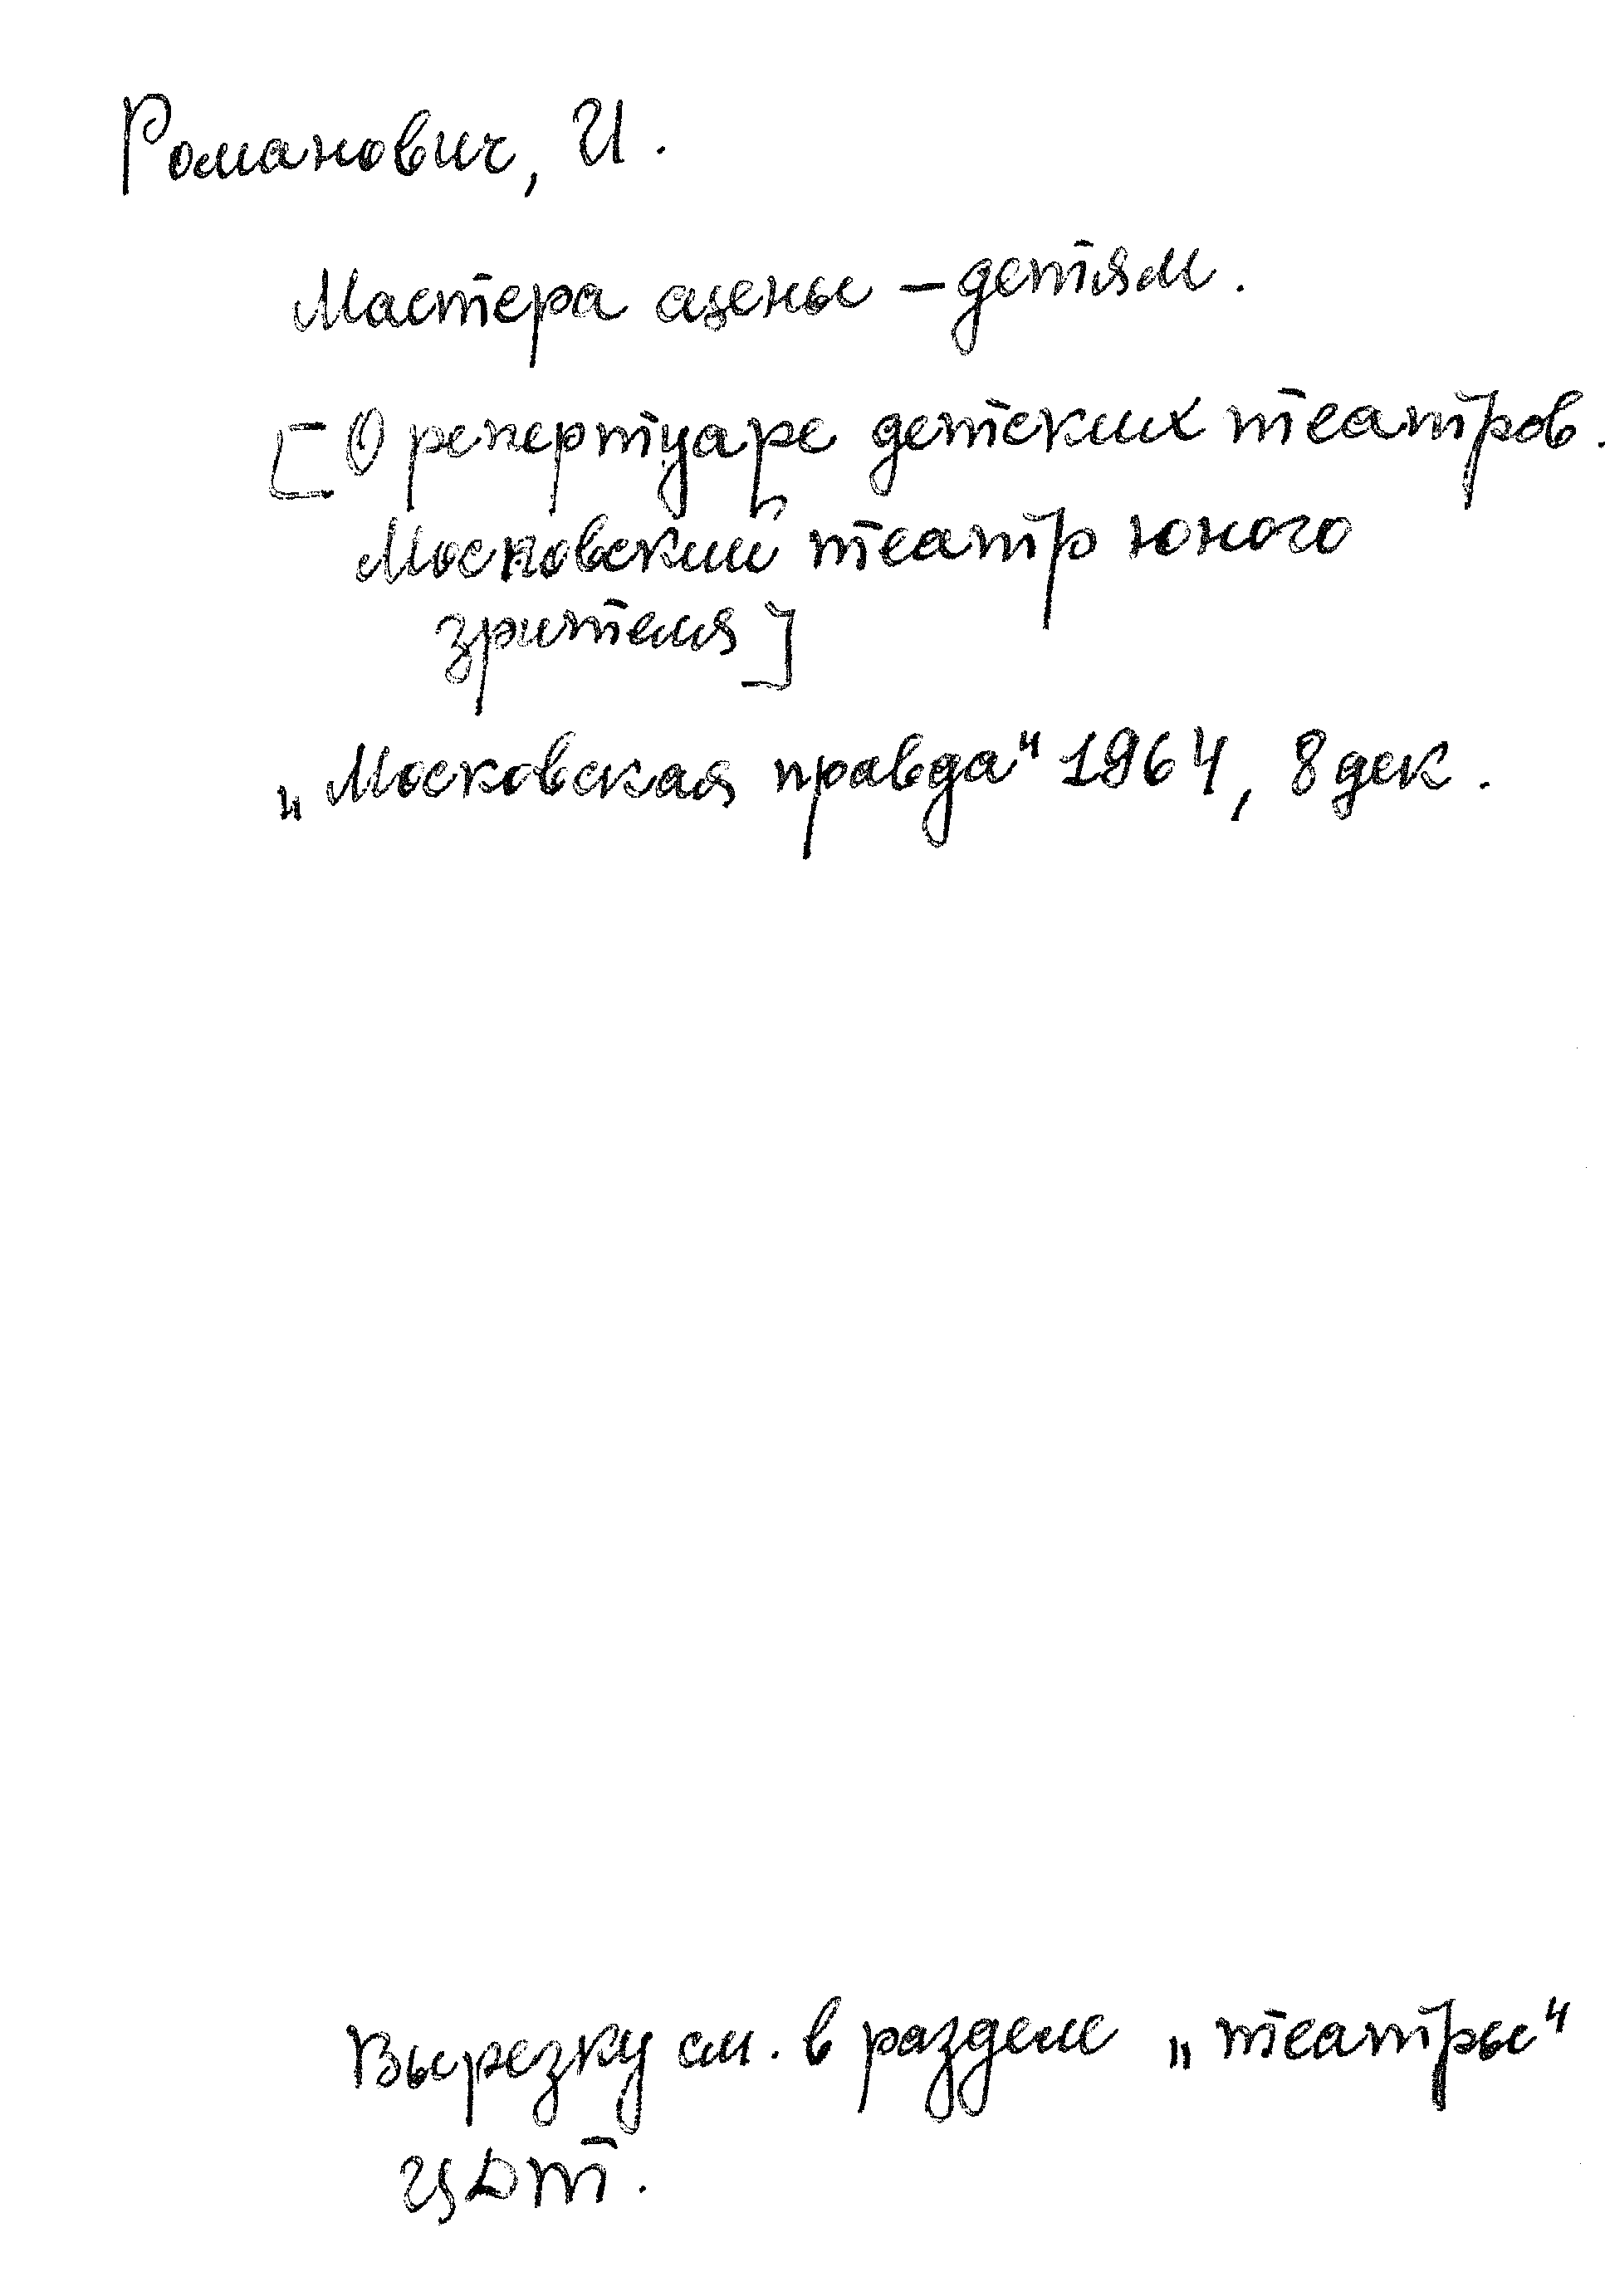 Романович, И.
Мастера сцены – детям.
[О репертуаре детских театров.
Московский театр юного
зрителя]
„Московская правда" 1964, 8 дек.
Вырезку см. в разделе „театры"
ЦДТ.